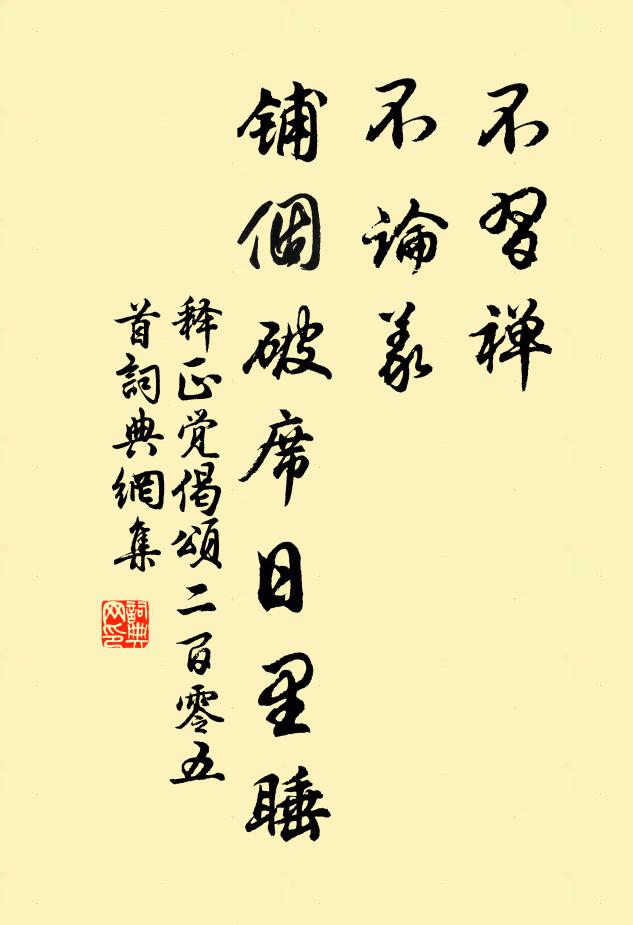 不習禅
不論義
鋪個破席日里睡
释正觉偈頌二百零五
首詞典網集
詞典
网印